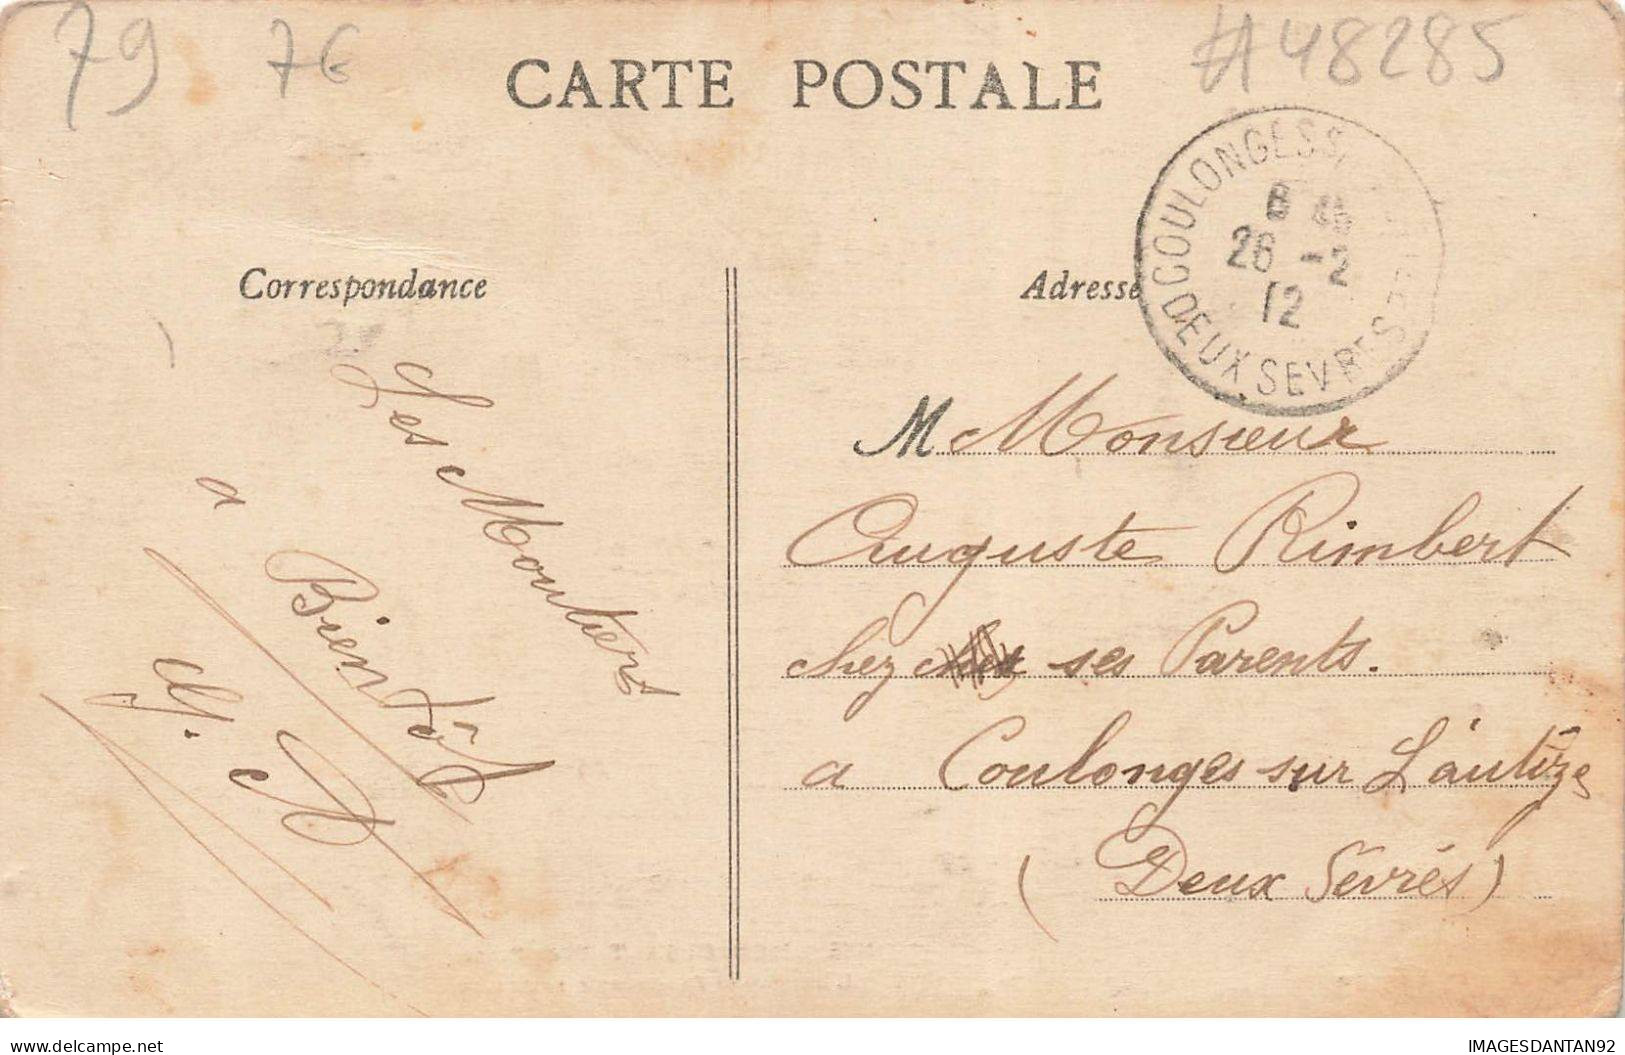 79 7€ #48285
CARTE POSTALE
COULONGES S
DEUX SEVRES
26 -2
12
Correspondance
Adresse
Les Moutiers
a Bientôt
M Monsieur
Auguste Rimbert
chez ses Parents.
a Coulonges sur L'autize
(Deux Sévrés)
delcampe.net
IMAGESDANTAN92